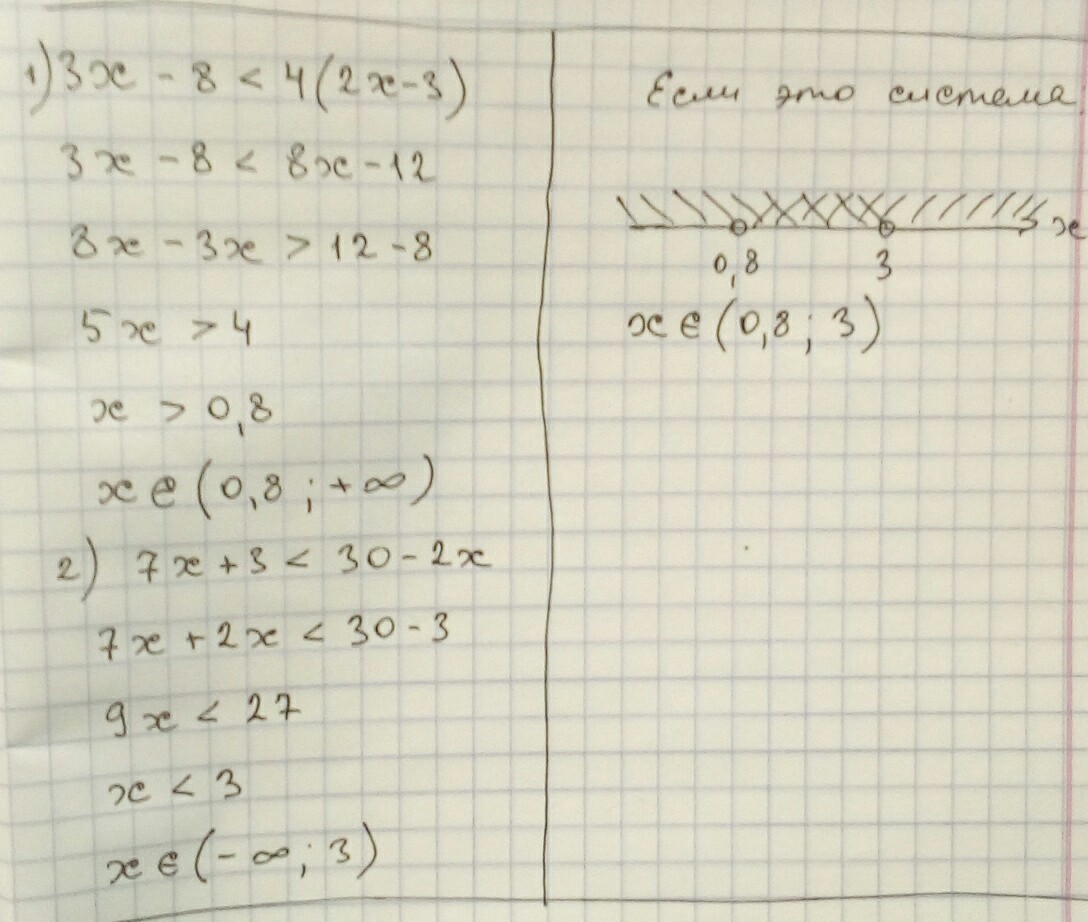 1) 3x - 8 < 4(2x-3)
3x - 8 < 8x - 12
8x - 3x > 12 - 8
5x > 4
x > 0,8
x ∈ (0,8 ; +∞)
2) 7x + 3 < 30 - 2x
7x + 2x < 30 - 3
9x < 27
x < 3
x ∈ (-∞; 3)
Если это система
x
0,8 3
x ∈ (0,8 ; 3)